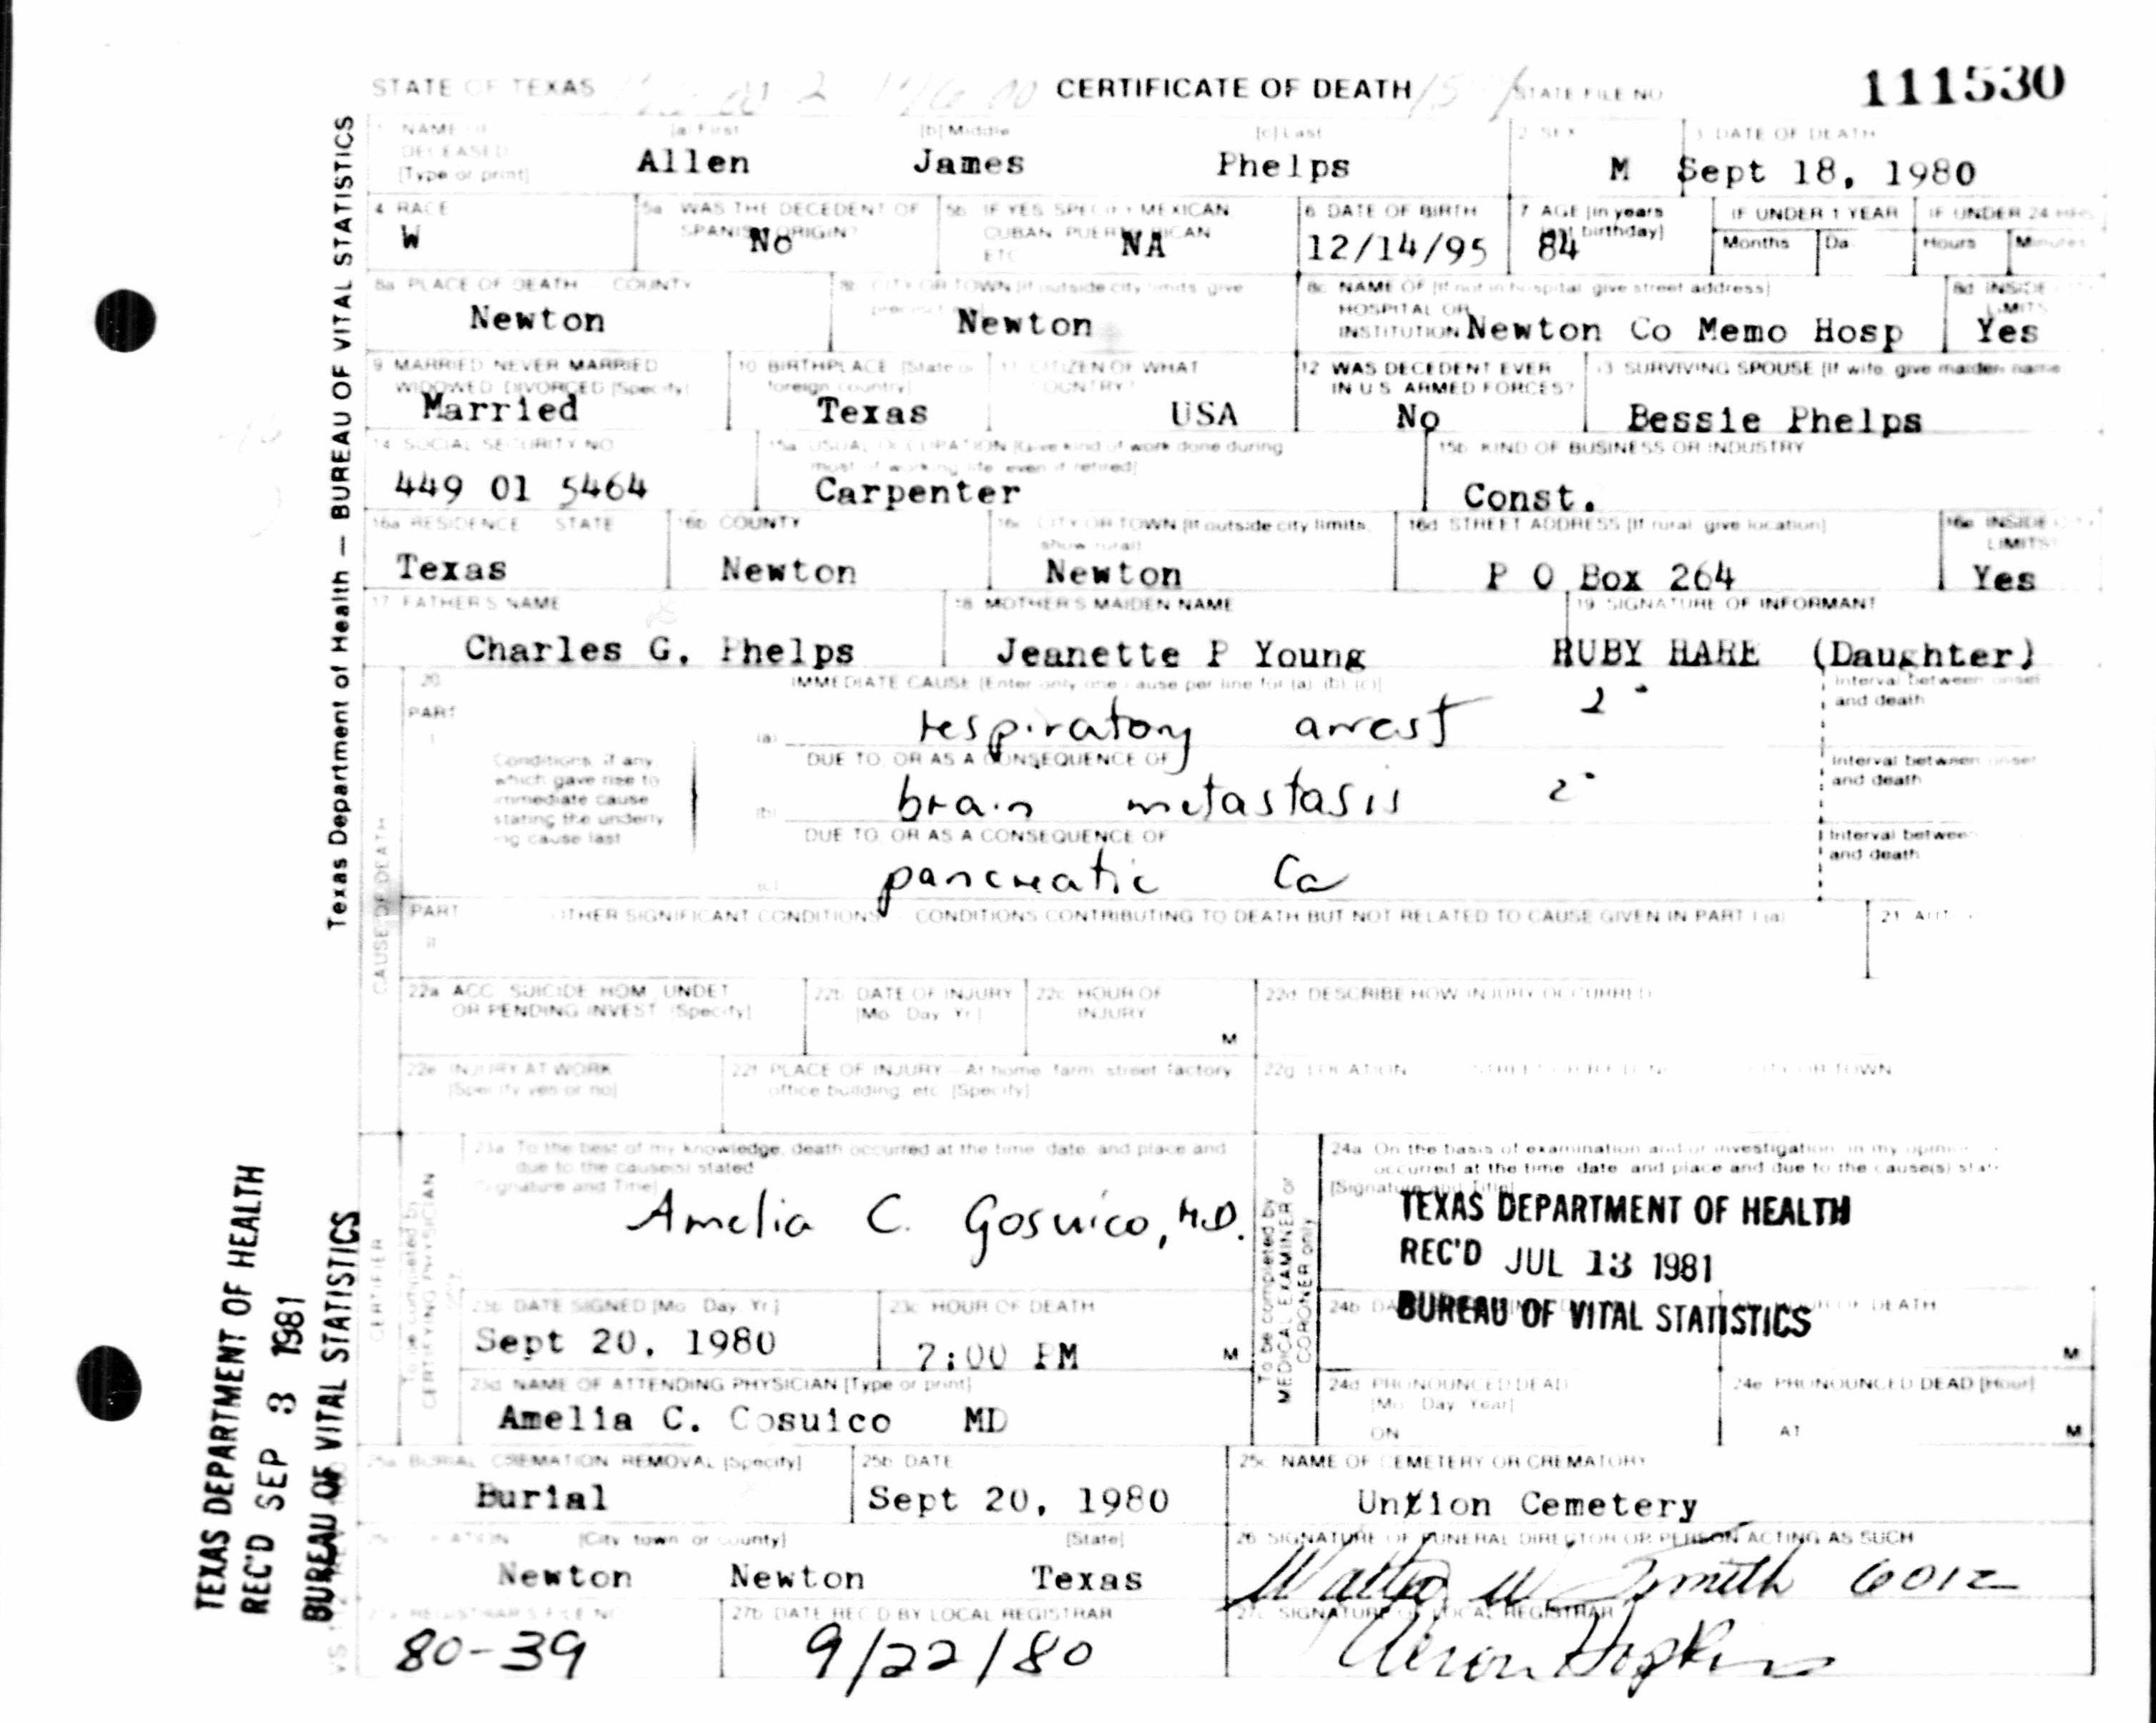 STATE OF TEXAS CERTIFICATE OF DEATH STATE FILE NO 111530
Texas Department of Health — BUREAU OF VITAL STATISTICS
1 NAME OF DECEASED [Type or print] [a] First [b] Middle [c] Last 2 SEX 3 DATE OF DEATH
Allen James Phelps M Sept 18, 1980
4 RACE 5a WAS THE DECEDENT OF SPANISH ORIGIN? 5b IF YES SPECIFY MEXICAN CUBAN PUERTO RICAN ETC 6 DATE OF BIRTH 7 AGE [in years last birthday] IF UNDER 1 YEAR IF UNDER 24 HRS
Months Da Hours Minutes
W No NA 12/14/95 84
8a PLACE OF DEATH COUNTY 8b CITY OR TOWN [If outside city limits give precinct 8c NAME OF [If not in hospital give street address] HOSPITAL OR INSTITUTION 8d INSIDE LIMITS
Newton Newton Newton Co Memo Hosp Yes
9 MARRIED NEVER MARRIED WIDOWED DIVORCED [Specify] 10 BIRTHPLACE [State or foreign country] 11 CITIZEN OF WHAT COUNTRY? 12 WAS DECEDENT EVER IN U S ARMED FORCES? 13 SURVIVING SPOUSE [If wife, give maiden name
Married Texas USA No Bessie Phelps
14 SOCIAL SECURITY NO 15a USUAL OCCUPATION [Give kind of work done during most of working life even if retired] 15b KIND OF BUSINESS OR INDUSTRY
449 01 5464 Carpenter Const.
16a RESIDENCE STATE 16b COUNTY 16c CITY OR TOWN [If outside city limits, show rural] 16d STREET ADDRESS [If rural give location] 16e INSIDE CITY LIMITS?
Texas Newton Newton P O Box 264 Yes
17 FATHER'S NAME 18 MOTHER'S MAIDEN NAME 19 SIGNATURE OF INFORMANT
Charles G. Phelps Jeanette P Young RUBY HARE (Daughter)
CAUSE OF DEATH
20 PART I IMMEDIATE CAUSE [Enter only one cause per line for (a) (b) (c)] Interval between onset and death
(a) respiratory arrest 2°
Conditions, if any which gave rise to immediate cause stating the underlying cause last
DUE TO, OR AS A CONSEQUENCE OF Interval between onset and death
(b) brain metastasis 2°
DUE TO, OR AS A CONSEQUENCE OF Interval between and death
(c) pancreatic Ca
PART II OTHER SIGNIFICANT CONDITIONS CONDITIONS CONTRIBUTING TO DEATH BUT NOT RELATED TO CAUSE GIVEN IN PART I (a) 21
22a ACC SUICIDE HOM UNDET OR PENDING INVEST [Specify] 22b DATE OF INJURY [Mo Day Yr] 22c HOUR OF INJURY M 22d DESCRIBE HOW INJURY OCCURRED
22e INJURY AT WORK [Specify yes or no] 22f PLACE OF INJURY—At home farm street factory office building, etc [Specify] 22g LOCATION CITY OR TOWN
CERTIFIER
To be completed by CERTIFYING PHYSICIAN
23a To the best of my knowledge, death occurred at the time date, and place and due to the cause(s) stated
[Signature and Title]
Amelia C. Gosuico, M.D.
To be completed by MEDICAL EXAMINER or CORONER only
24a On the basis of examination and or investigation in my opinion occurred at the time date and place and due to the cause(s)
[Signature and Title]
TEXAS DEPARTMENT OF HEALTH
REC'D JUL 13 1981
BUREAU OF VITAL STATISTICS
23b DATE SIGNED [Mo Day Yr] 23c HOUR OF DEATH 24b DEATH
Sept 20, 1980 7:00 PM M M
23d NAME OF ATTENDING PHYSICIAN [Type or print] 24d PRONOUNCED DEAD [Mo Day Year] 24e PRONOUNCED DEAD [Hour]
Amelia C. Cosuico MD ON AT M
25a BURIAL CREMATION REMOVAL [Specify] 25b DATE 25c NAME OF CEMETERY OR CREMATORY
Burial Sept 20, 1980 Union Cemetery
[City town or county] [State] 26 SIGNATURE OF FUNERAL DIRECTOR OR PERSON ACTING AS SUCH
Newton Newton Texas Walter W Smith 6012
27a REGISTRAR'S FILE NO 27b DATE REC'D BY LOCAL REGISTRAR 27c SIGNATURE OF LOCAL REGISTRAR
80-39 9/22/80
TEXAS DEPARTMENT OF HEALTH
REC'D SEP 3 1981
BUREAU OF VITAL STATISTICS